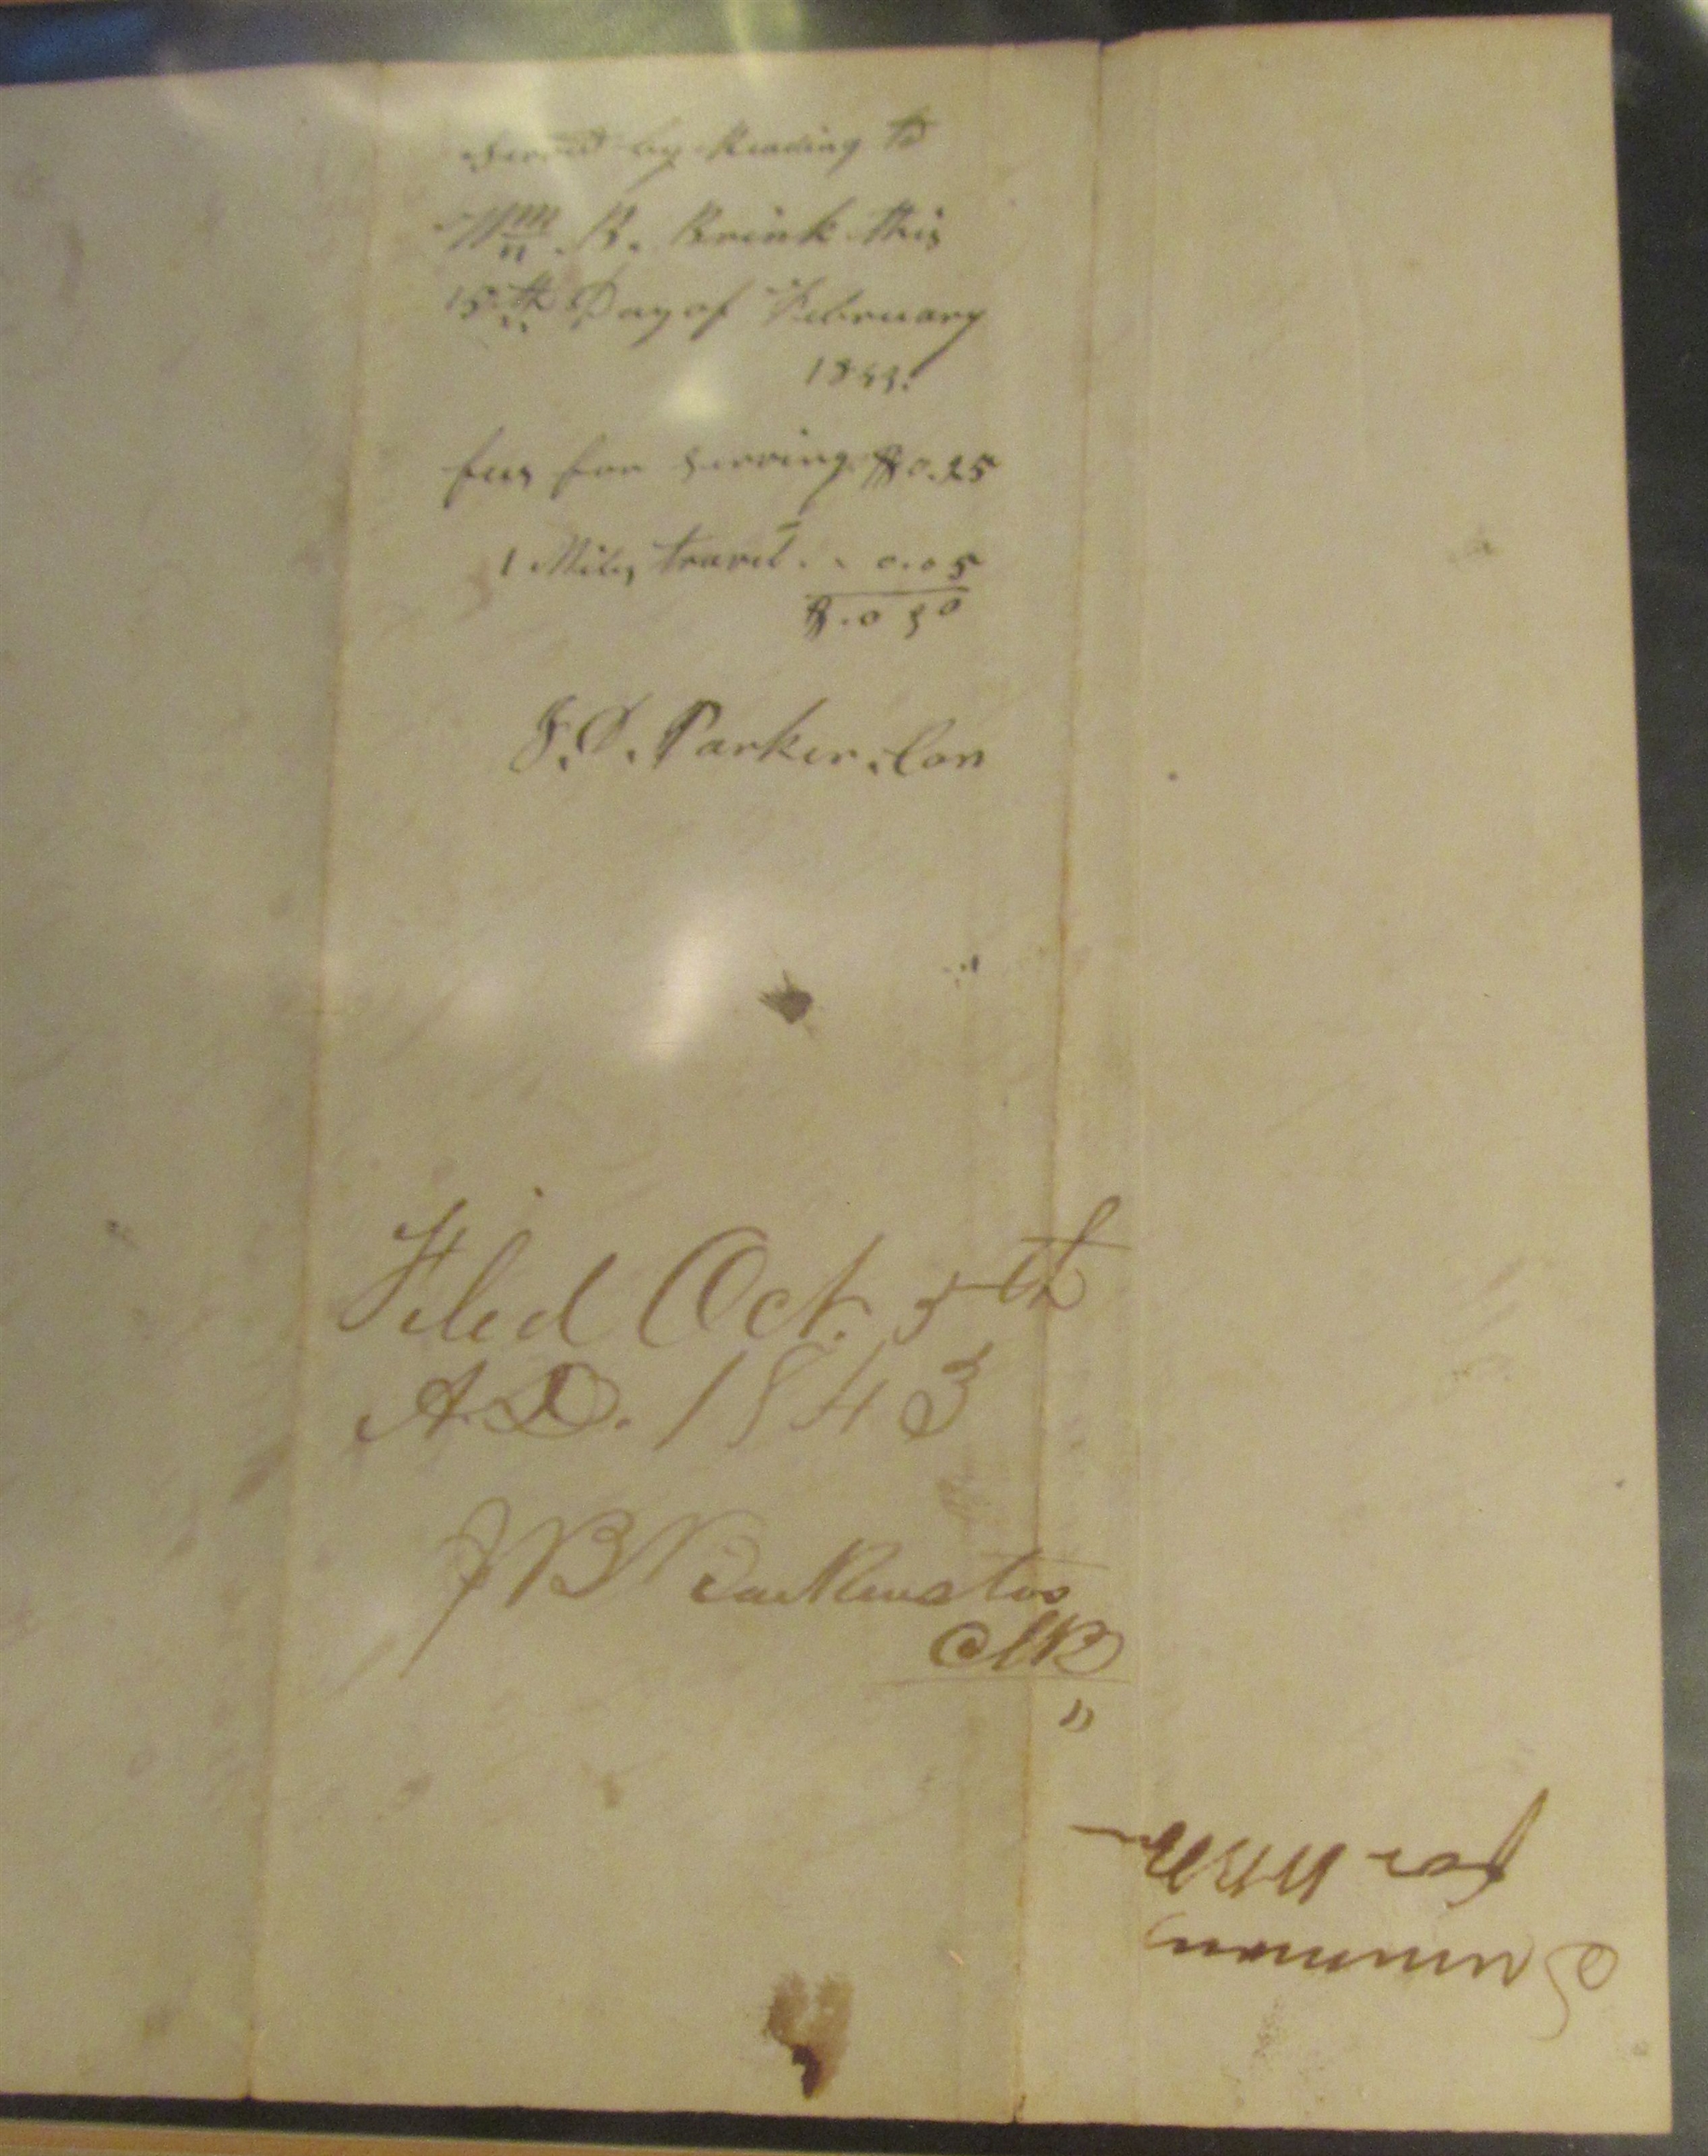 Served by Reading to
Wm B. Brink this
15th Day of February
1843.
fees for serving $0.25
1 Miles travel . . 0.05
$.0 30
J.D. Parker, Con
Filed Oct. 5th
A.D. 1843
J B Backenstos
Clk
"
Summons
for